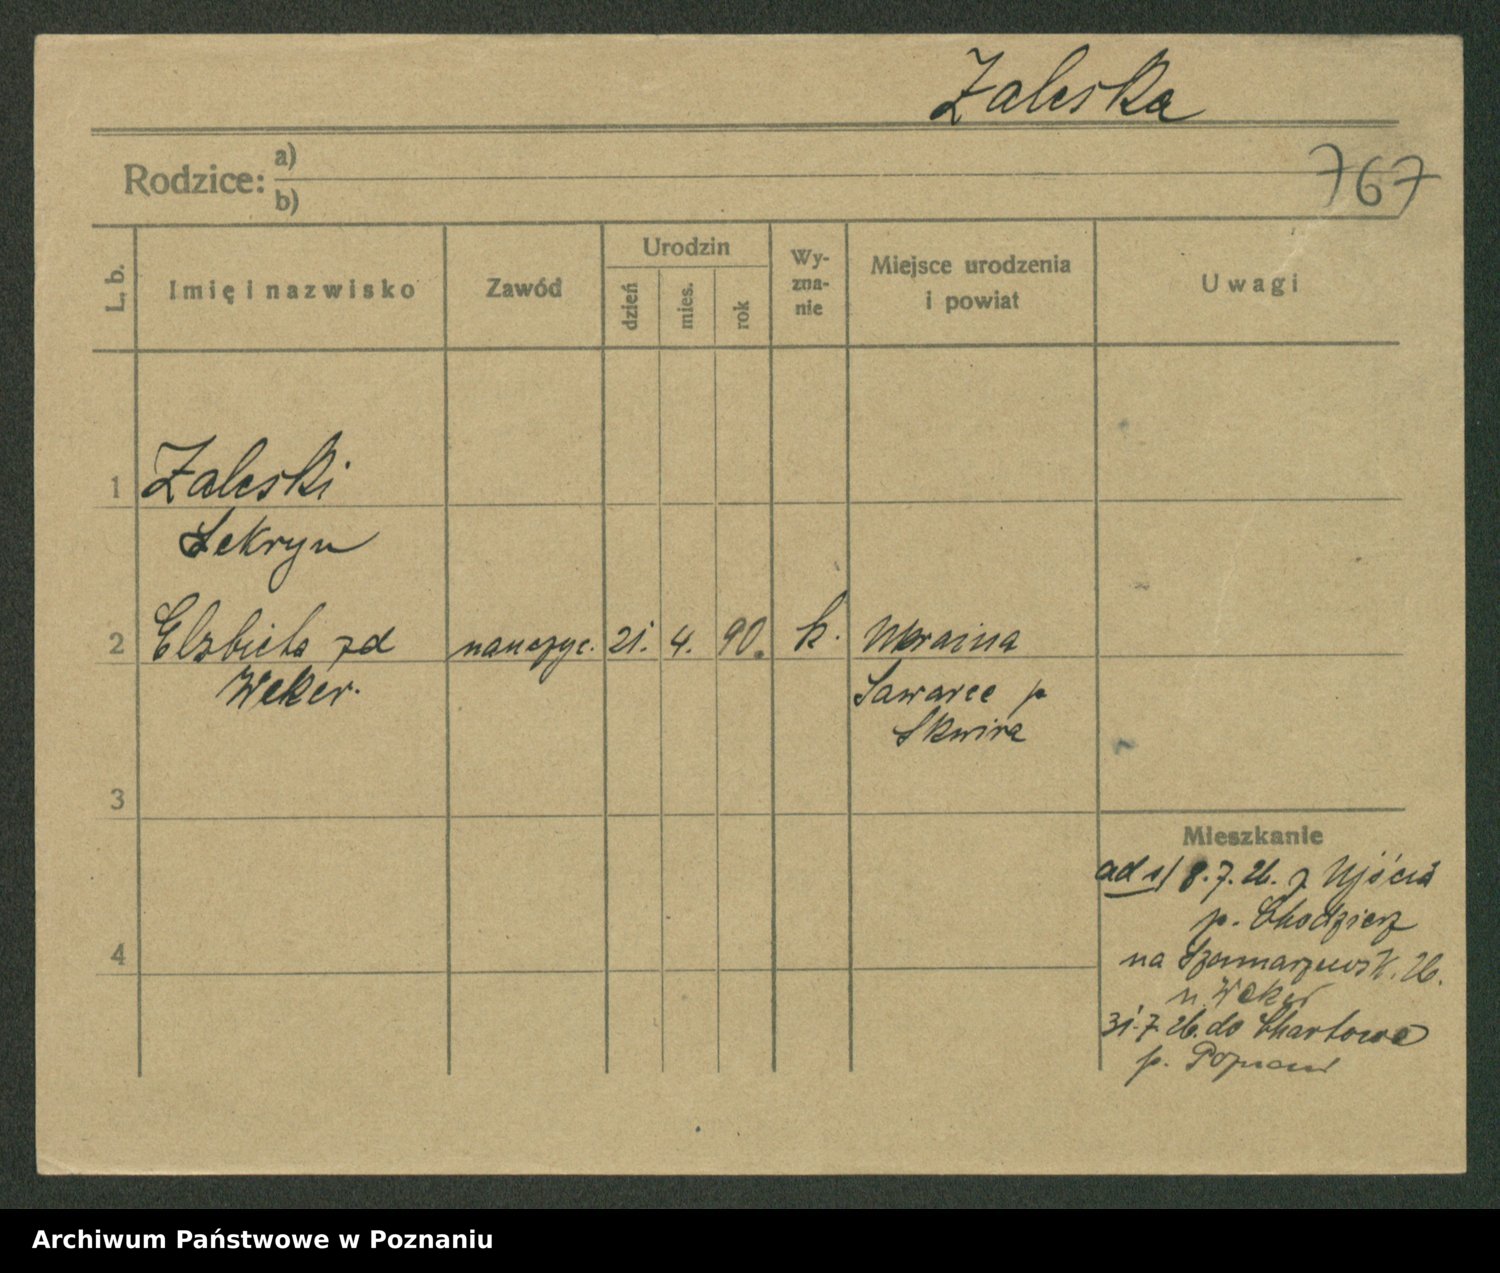 Zaleska
Rodzice: a)
b)
767
L. b.
Imię i nazwisko
Zawód
Urodzin
dzień
mies.
rok
Wy-
zna-
nie
Miejsce urodzenia
i powiat
Uwagi
1 Zaleski
Sekryn
2 Elżbieta zd nauczyc. 21. 4. 90. k. Ukraina
Weker.
Sawarce p
Skwira
3
Mieszkanie
ad 1/ 8.7.26. z Ujścia
p. Chodzież
4
na Szamarzewsk. 26.
u. Weker
31.7.26. do Chartowa
p. Poznań
Archiwum Państwowe w Poznaniu